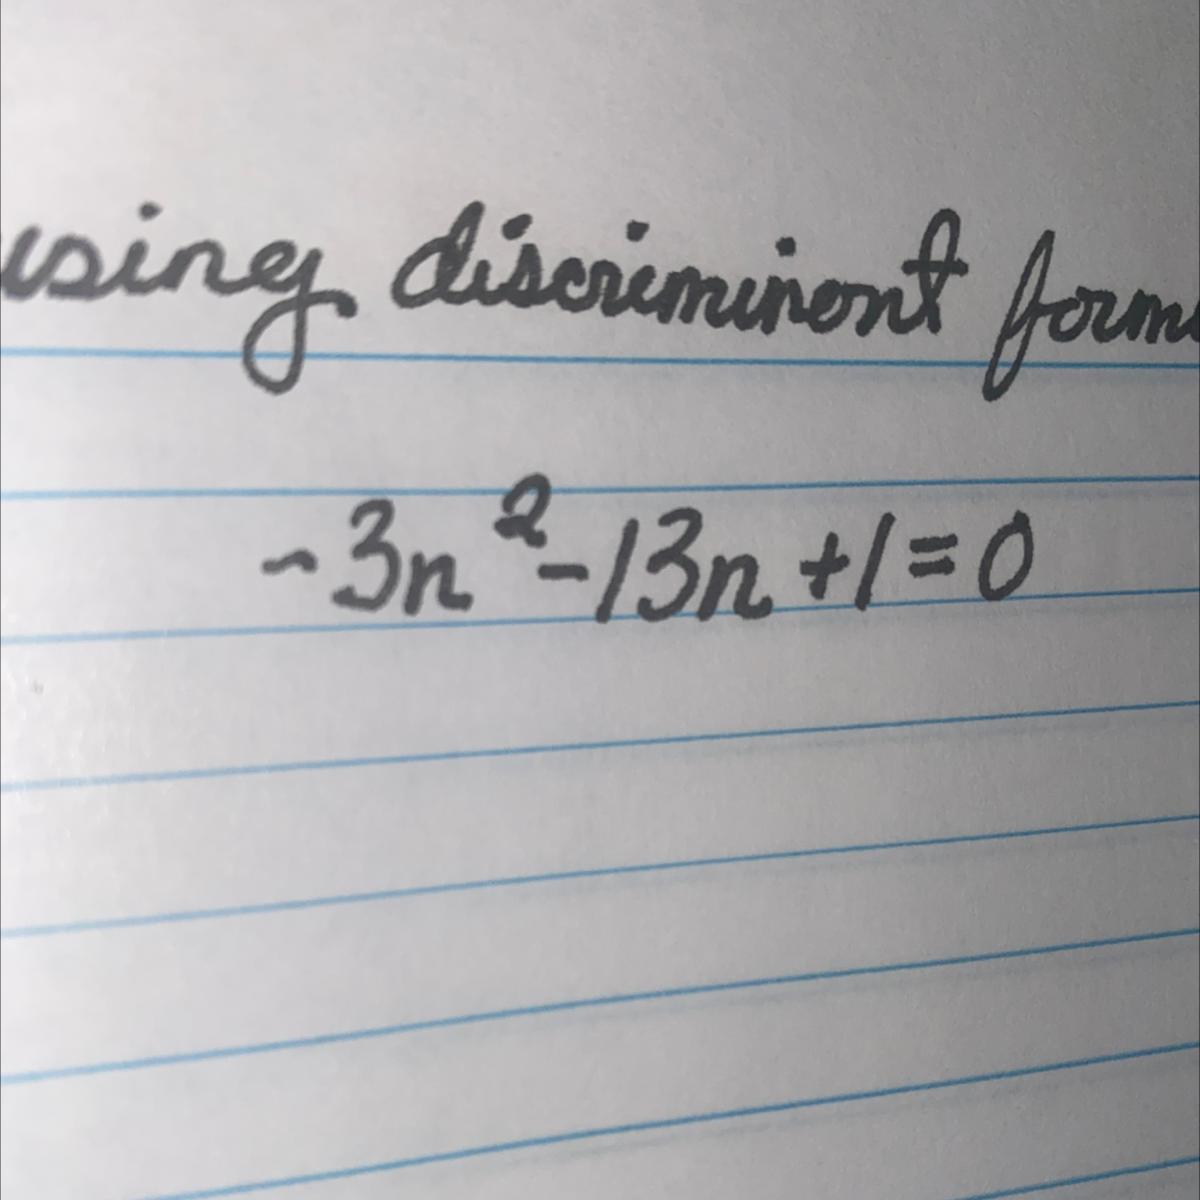 using discriminont form
-3n²-13n+1=0